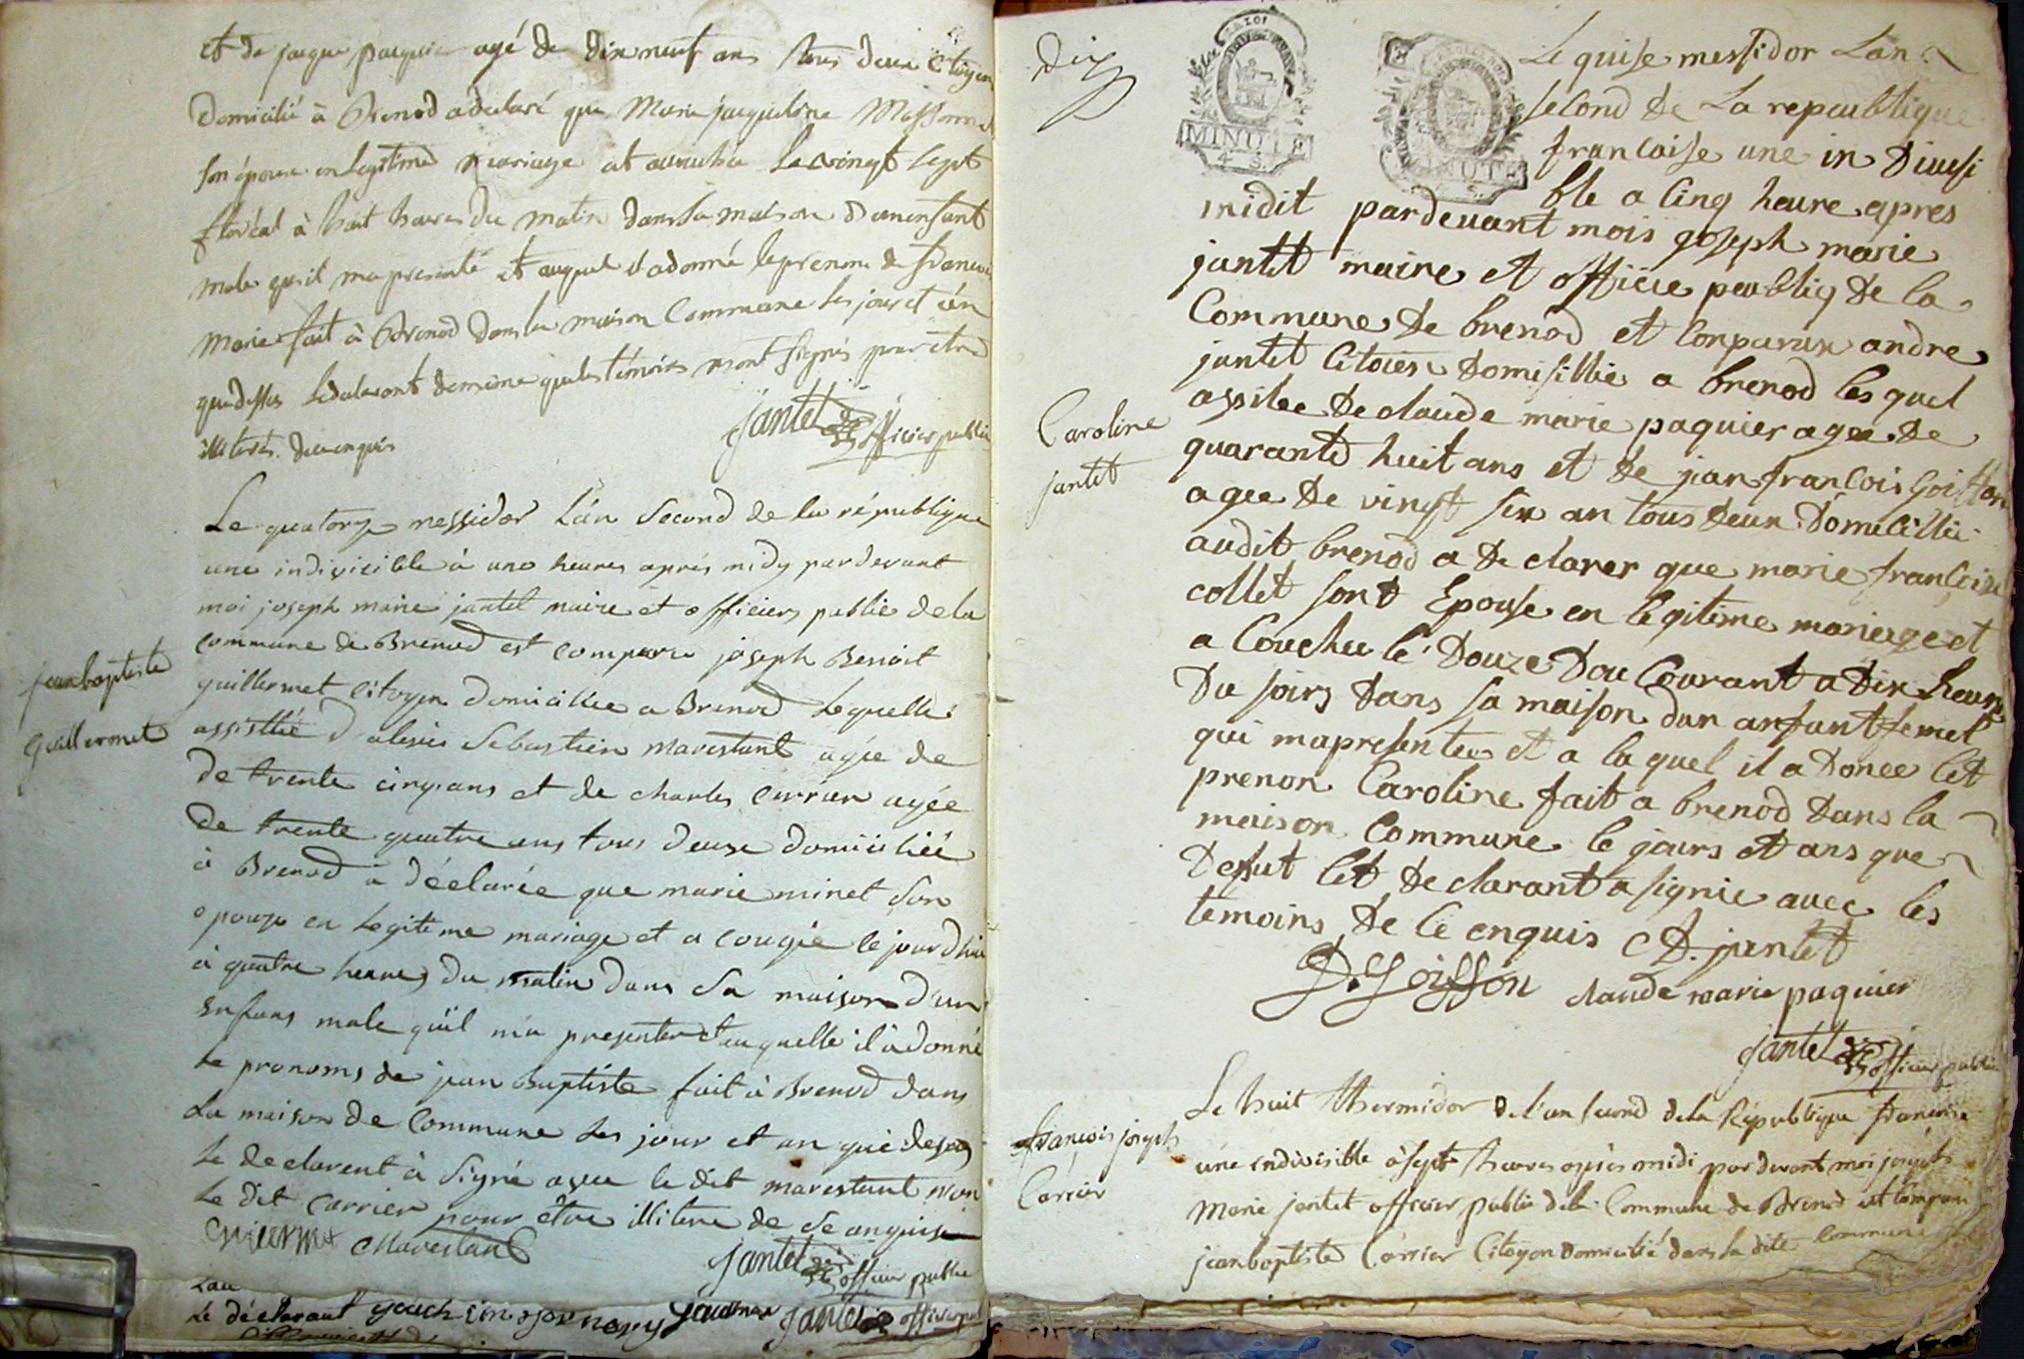 et de jaque paquie agé de dix neuf ans tous deux Citoyen
Domicilié à Brenod a declaré que Marie jacqueline
son épouse en Legitime mariage at accouchée Le vingt sept
floréal à huit heures du matin dans sa maison d'un enfant
male qu'il m'a presenté et auquel il a donné le prenom de françois
Marie fait à Brenod dans la maison Commune les jour et an
que dessus Le declarant de même que les témoins n'ont signés pour etre
illiterés de ce enquis
jantet officier public
jean baptiste
Guillermet
Le quatorze messidor L'an Second de la république
une indivicible à une heures aprés midy pardevant
moi joseph marie jantet maire et officiers public de la
commune de Brenod est comparu joseph Benoit
guillermet Citoyen domicilliée a Brenod Lequelle
assistée d'alexis Sebastien marestant agée de
de trente cinq ans et de charles carrier agée
de trente quatre ans tous deux domiciliée
à Brenod a déclarée que marie minet Son
epouze en Legiteme mariage et a cougée ce jourd'hui
à quatre heures du matin dans Sa maison d'un
enfans male qu'il m'a presenter et auquelle il à donné
le pronoms de jean Baptiste fait à Brenod dans
La maison de Commune les jour et an que desus
Le declarent à Signé avec le dit marestant non
Le dit Carrier pour être illitere de Se anquise
Guillermet Marestant
jantet officier public
Le déclarant jantet officier public
Dix
MINUTE
4 S.
MINUTE
Le quise messidor Lan
second de La republique
francaise une in Diuisi
ble a Cinq heure apres
midit pardeuant mois joseph marie
jantet maire et officie peublig De la
Commune De brenod et Conparux andre
jantet Citoien Domisillie a brenod les quel
assilee De claude marie paquier agee De
quarante huit ans et De jean francois Goiffon
agee De vingt six an tous Deux Domecillie
audit brenod a De clarer que marie francoise
collet sont Epouse en legitime mariage et
a Couchee le Douze Dou Courant a Dix heure
Du soirs Dans sa maison dun anfant femel
qui mapresentee et a laquel il a Donee let
prenon Caroline fait a brenod Dans la
maison Commune le jours et ans que
Desut let De clarant a signie auec les
temoins De Ce enquis A. jantet
Goiffon claude marie paquier
jantet officier public
Caroline
jantet
françois joseph
Carrier
Le huit thermidor de l'an second de la République francaise
une indivisible à sept heures après midi par devant moi joseph
Marie jantet officier public de la Commune de Brenod est Comparu
jean baptiste Carrier Citoyen Domicilié dans la dite Commune